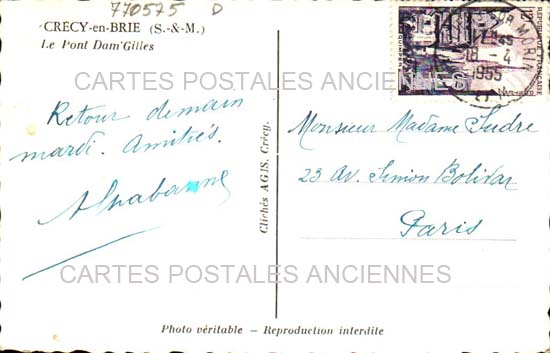 770575 D
CRÉCY-en-BRIE (S.-&-M.)
Le Pont Dam'Gilles
CARTES POSTALES ANCIENNES
Retour demain
mardi. Amitiés.
Clichés AGIS, Crécy.
18 - 4
1955
Monsieur Madame Sudre
23 Av. Simon Bolivar
Paris
CARTES POSTALES ANCIENNES
Photo véritable – Reproduction interdite